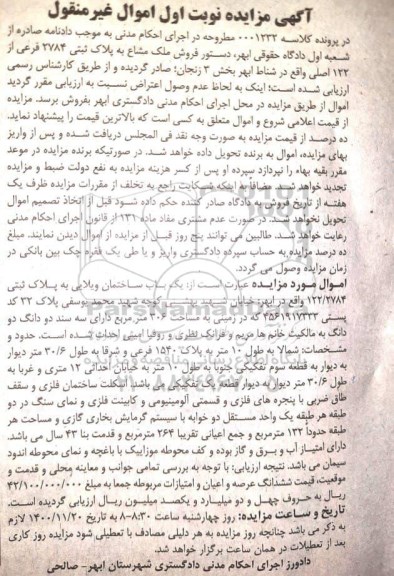 آگهی مزایده نوبت اول اموال غیر منقول
در پرونده کلاسه ۰۰۰۱۲۳۲ مطروحه در اجرای احکام مدنی به موجب دادنامه صادره از
شعبه اول دادگاه حقوقی ابهر، دستور فروش ملک مشاع به پلاک ثبتی ۲۷۸۴ فرعی از
۱۲۲ اصلی واقع در شناط ابهر بخش ۳ زنجان؛ صادر گردیده و از طریق کارشناس رسمی
ارزیابی شده است؛ اینک به لحاظ عدم وصول اعتراض نسبت به ارزیابی مقرر گردید
اموال از طریق مزایده در محل اجرای احکام مدنی دادگستری ابهر بفروش برسد. مزایده
از قیمت اعلامی شروع و اموال متعلق به کسی است که بالاترین قیمت را پیشنهاد نماید.
ده درصد از قیمت مزایده به صورت وجه نقد فی المجلس دریافت شده و پس از واریز
بهای مزایده، اموال به برنده تحویل داده خواهد شد. در صورتیکه برنده مزایده در موعد
مقرر بقیه بهاء را نپردازد سپرده او پس از کسر هزینه مزایده به نفع دولت ضبط و مزایده
تجدید خواهد شد. مضافا به اینکه شکایت راجع به تخلف از مقررات مزایده ظرف یک
هفته از تاریخ فروش به دادگاه صادر کننده حکم داده شود قبل از اتخاذ تصمیم اموال
تحویل نخواهد شد. در صورت عدم مشتری مفاد ماده ۱۳۱ از قانون اجرای احکام مدنی
رعایت خواهد شد. طالبین می توانند پنج روز قبل از مزایده از اموال دیدن نمایند. مبلغ
ده درصد مزایده به حساب سپرده دادگستری واریز و یا طی یک فقره چک بین بانکی در
زمان مزایده وصول می گردد.
اموال مورد مزایده عبارت است از: یک باب ساختمان ویلایی به پلاک ثبتی
۱۲۲/۲۷۸۴ واقع در ابهر: خیابان شهید بهشتی کوچه شهید محمد یوسفی پلاک ۲۲ کد
پستی ۴۵۶۱۹۱۷۴۳۳ که در زمینی به مساحت ۳۰۶ متر مربع دارای سه سند دو دانگ دو
دانگ به مالکیت خانم ها مریم و فرانک نظری و روفیا امینی احداث شده است. حدود و
مشخصات: شمالا به طول ۱۰ متر به پلاک ۱۵۴۰ فرعی و شرقا به طول ۳۰/۶ متر دیوار
به دیوار به قطعه سوم تفکیکی جنوبا به طول ۱۰ متر به خیابان احداثی ۱۲ متری و غربا به
طول ۳۰/۶ متر دیوار به دیوار قطعه یک تفکیکی می باشد. اسکلت ساختمان فلزی و سقف
طاق ضربی با پنجره های فلزی و قسمتی آلومینیومی و کابینت فلزی و نمای سنگ در دو
طبقه هر طبقه یک واحد مستقل دو خوابه با سیستم گرمایش بخاری گازی و مساحت هر
طبقه حدوداً ۱۳۲ مترمربع و جمع اعیانی تقریبا ۲۶۴ مترمربع و قدمت بنا ۴۳ سال می باشد.
دارای امتیاز آب و برق و گاز بوده و کف محوطه موزاییک با باغچه و نمای محوطه اندود
سیمان می باشد. نتیجه ارزیابی: با توجه به بررسی تمامی جوانب و معاینه محلی و قدمت و
موقعیت، قیمت ششدانگ عرصه و اعیان و امتیازات مربوطه جمعا به مبلغ ۴۲/۱۰۰/۰۰۰/۰۰۰
ریال به حروف چهل و دو میلیارد و یکصد میلیون ریال ارزیابی گردیده است.
تاریخ و ساعت مزایده: روز چهارشنبه ساعت ۸:۳۰-۸ به تاریخ ۱۴۰۰/۱۱/۲۰ لازم
به ذکر می باشد چنانچه روز مزایده به هر دلیلی مصادف با تعطیلی شود مزایده روز کاری
بعد از تعطیلات در همان ساعت برگزار خواهد شد.
دادورز اجرای احکام مدنی دادگستری شهرستان ابهر- صالحی